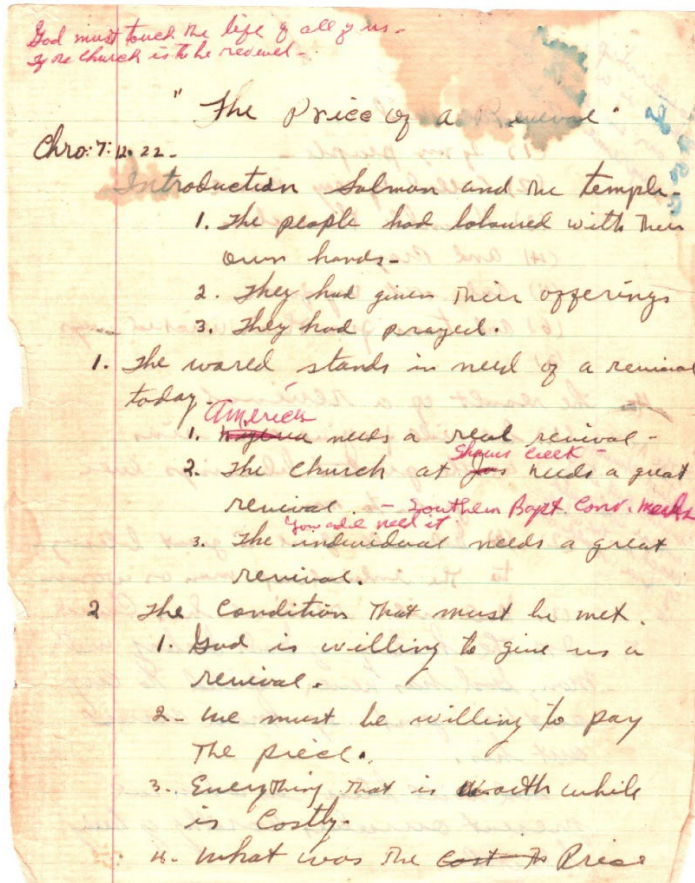 God must touch the life of all of us.
If the church is to be revived -
"The Price of a Revival"
Chro: 7: 12. 22 -
Introduction Salmon and the temple -
1. The people had laboured with their
own hands -
2. They had given their offerings
3. They had prayed.
1. The world stands in need of a revival
today.
America
1. Nigeria needs a real revival -
Shaws Creek -
2. The Church at Jos needs a great
revival. - Southern Bapt. Conv. needs
You all need it
3. The individual needs a great
revival.
2 The Condition that must be met.
1. God is willing to give us a
revival.
2 - We must be willing to pay
the price.
3. Everything that is worth while
is Costly.
4. What was the cost to Price